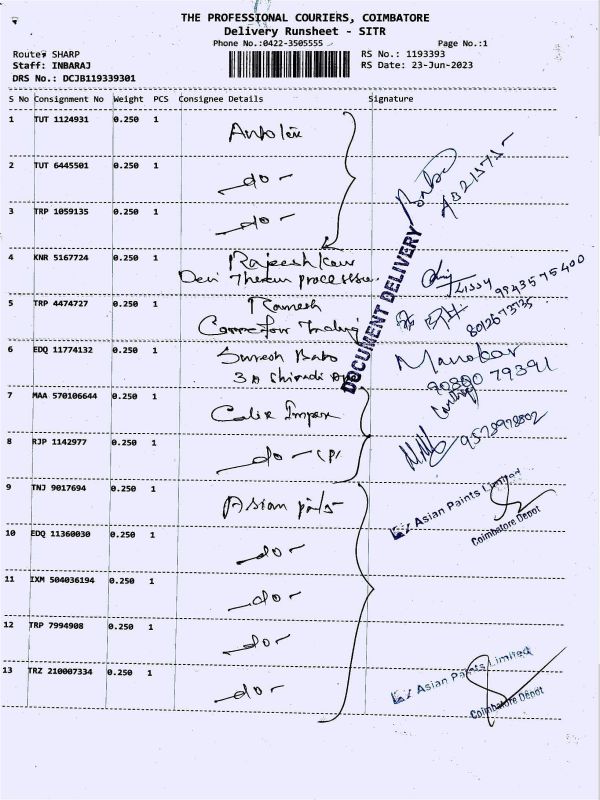 THE PROFESSIONAL COURIERS, COIMBATORE
Delivery Runsheet - SITR
Phone No.:0422-3505555 Page No.:1
Route: SHARP RS No.: 1193393
Staff: INBARAJ RS Date: 23-Jun-2023
DRS No.: DCJB119339301
S No Consignment No Weight PCS Consignee Details Signature
1 TUT 1124931 0.250 1
2 TUT 6445501 0.250 1 -do-
3 TRP 1059135 0.250 1 -do-
4 KNR 5167724 0.250 1 Rajeesh
Devi Therem 9943575400
5 TRP 4474727 0.250 1 Ramesh
Trading
6 EDQ 11774132 0.250 1 Suresh Babo Manohar
3A Shiradi 90800 79391
7 MAA 570106644 0.250 1 Calix Impex
8 RJP 1142977 0.250 1 -do-
9 TNJ 9017694 0.250 1 Asian Asian Paints Limited
Coimbatore Depot
10 EDQ 11360030 0.250 1 -do-
11 IXM 504036194 0.250 1 -do-
12 TRP 7994908 0.250 1 -do-
13 TRZ 210007334 0.250 1 -do- Asian Paints Limited
Coimbatore Depot
DOCUMENT DELIVERY